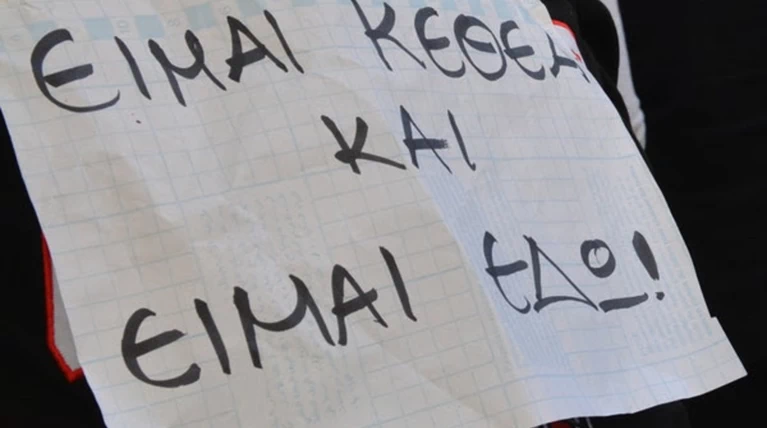 ΕΙΜΑΙ ΚΕΘΕΑ
ΚΑΙ
ΕΙΜΑΙ ΕΔΩ!